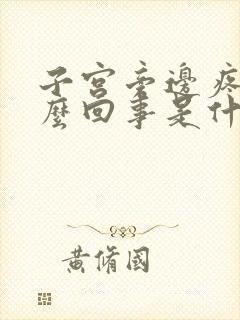 子宮旁邊疼
麼回事是什
黃脩國